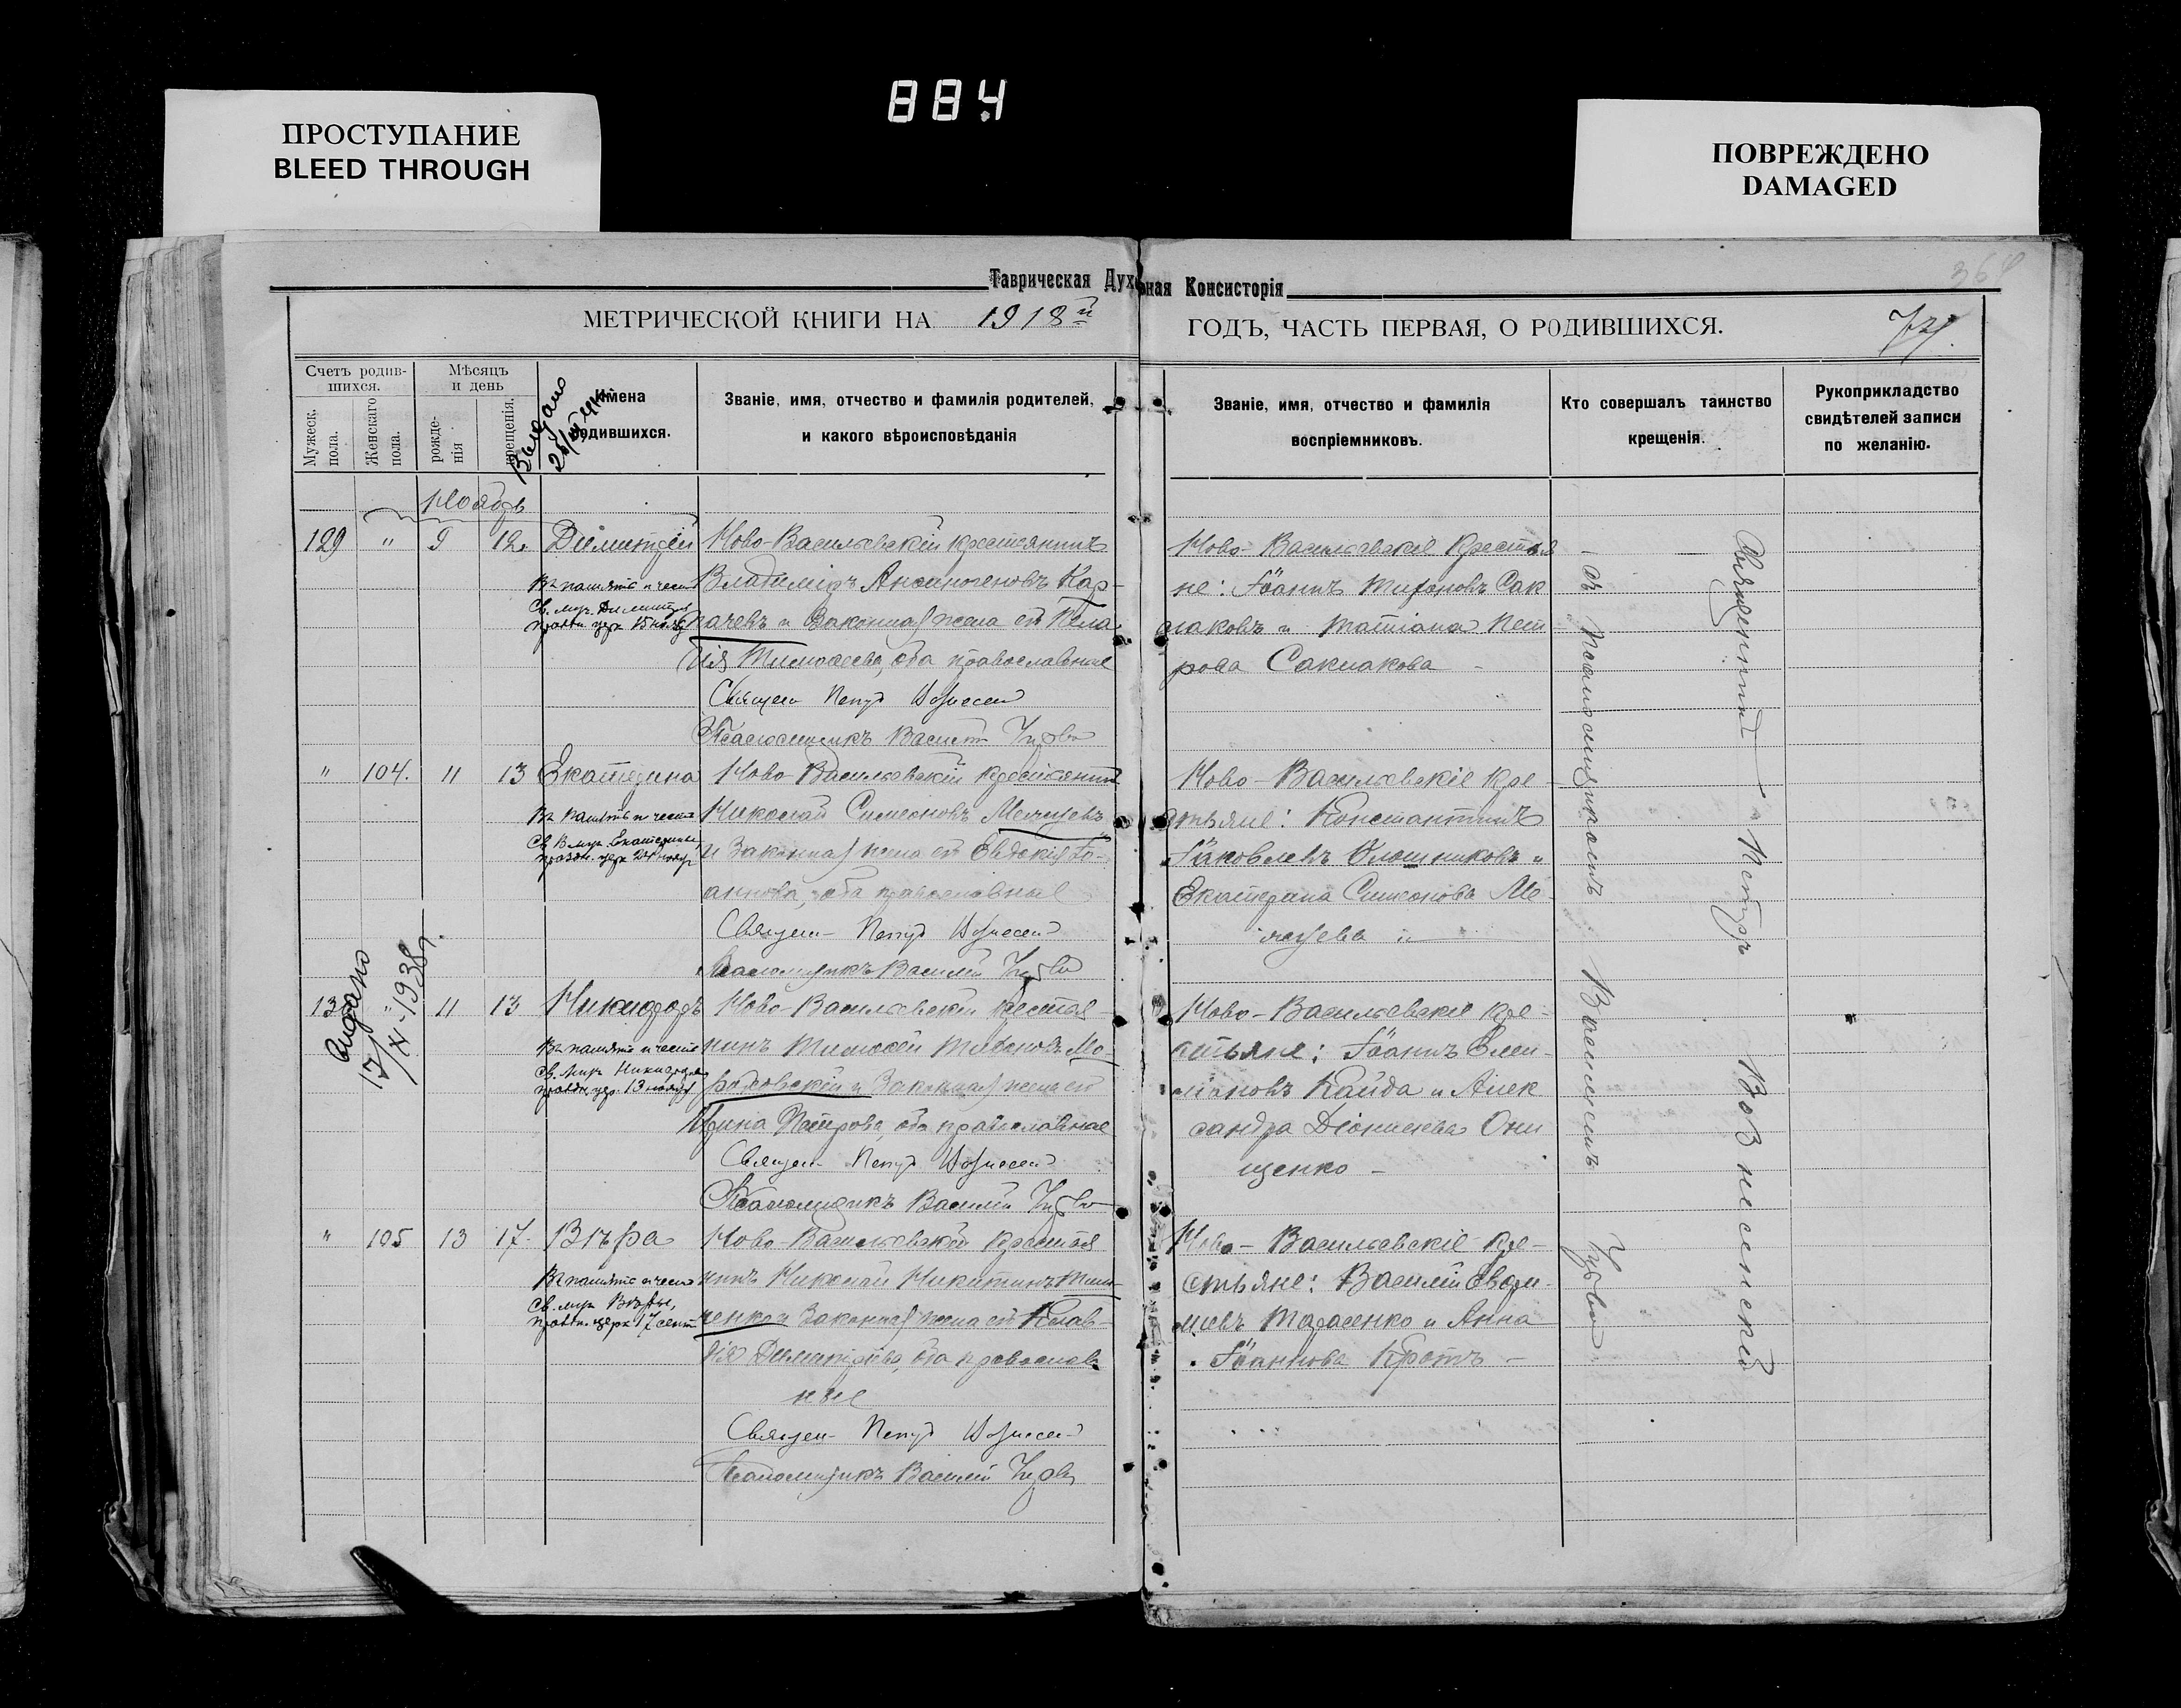 884
ПРОСТУПАНИЕ
BLEED THROUGH
ПОВРЕЖДЕНО
DAMAGED
Таврическая Духовная Консисторія
МЕТРИЧЕСКОЙ КНИГИ НА 1918й ГОДЪ, ЧАСТЬ ПЕРВАЯ, О РОДИВШИХСЯ.
Счетъ родив-
шихся.
Мужеск. пола.
Женскаго пола.
Мѣсяцъ
и день
рожде-
нія
крещенія.
Имена
родившихся.
Званіе, имя, отчество и фамилія родителей,
и какого вѣроисповѣданія
Званіе, имя, отчество и фамилія
воспріемниковъ.
Кто совершалъ таинство
крещенія.
Рукоприкладство
свидѣтелей записи
по желанію.
Ноябрь
129 " 9 12. Димитрій
Въ память и честь
Св. мир. Димитрія
праздн. церк 15 нояб
Ново-Васильевскій крестьянинъ
Владиміръ Анфиногеновъ Кар-
пачевъ и законная жена его Пела
гія Тимофеева, оба православные
Священ Петръ Вознесен
Псаломщикъ Василій
Ново-Васильевскіе крестья
не: Іоаннъ Тихоновъ Сак
маковъ и Татіана Пет
рова Сакмакова
" 104. 11 13 Екатерина
Въ память и честь
Св. В. муч. Екатерины,
праздн. церк 24 нояб
Ново-Васильевскій крестьянинъ
Николай Симеоновъ
и законная жена его Евдокія Іо-
аннова, оба православные
Священ Петръ Вознесен
Псаломщикъ Василій
Ново-Васильевскіе кре-
стьяне: Константинъ
Іаковлевъ и
Екатерина Симеонова
130 " 11 13 Никифоръ
выдано
13/XI-1938г.
Въ память и честь
Св. Мир. Никифора
праздн. цер. 13 нояб
Ново-Васильевскій крестья-
нинъ Тимофей Тихоновъ
и законная жена его
Ирина Петрова, оба православные
Священ Петръ Вознесен
Псаломщикъ Василій
Ново-Васильевскіе кре-
стьяне: Іоаннъ Емел-
іановъ Кайда и Алек
сандра Діонисіева Они
щенко
" 105 13 17. Вѣра
Въ память и честь
Св. муч. Вѣры,
праздн. церк 17 сент
Ново-Васильевскій крестья
нинъ Николай Никитинъ Тим-
ченко и законная жена его Клав-
дія Димитріева, оба православ
ные
Священ Петръ Вознесен
Псаломщикъ Василій
Ново-Васильевскіе кре-
стьяне: Василій
Тарасенко и Анна
Іоаннова Кротъ
Священникъ Петръ Вознесенскій
съ псаломщикомъ Василіемъ